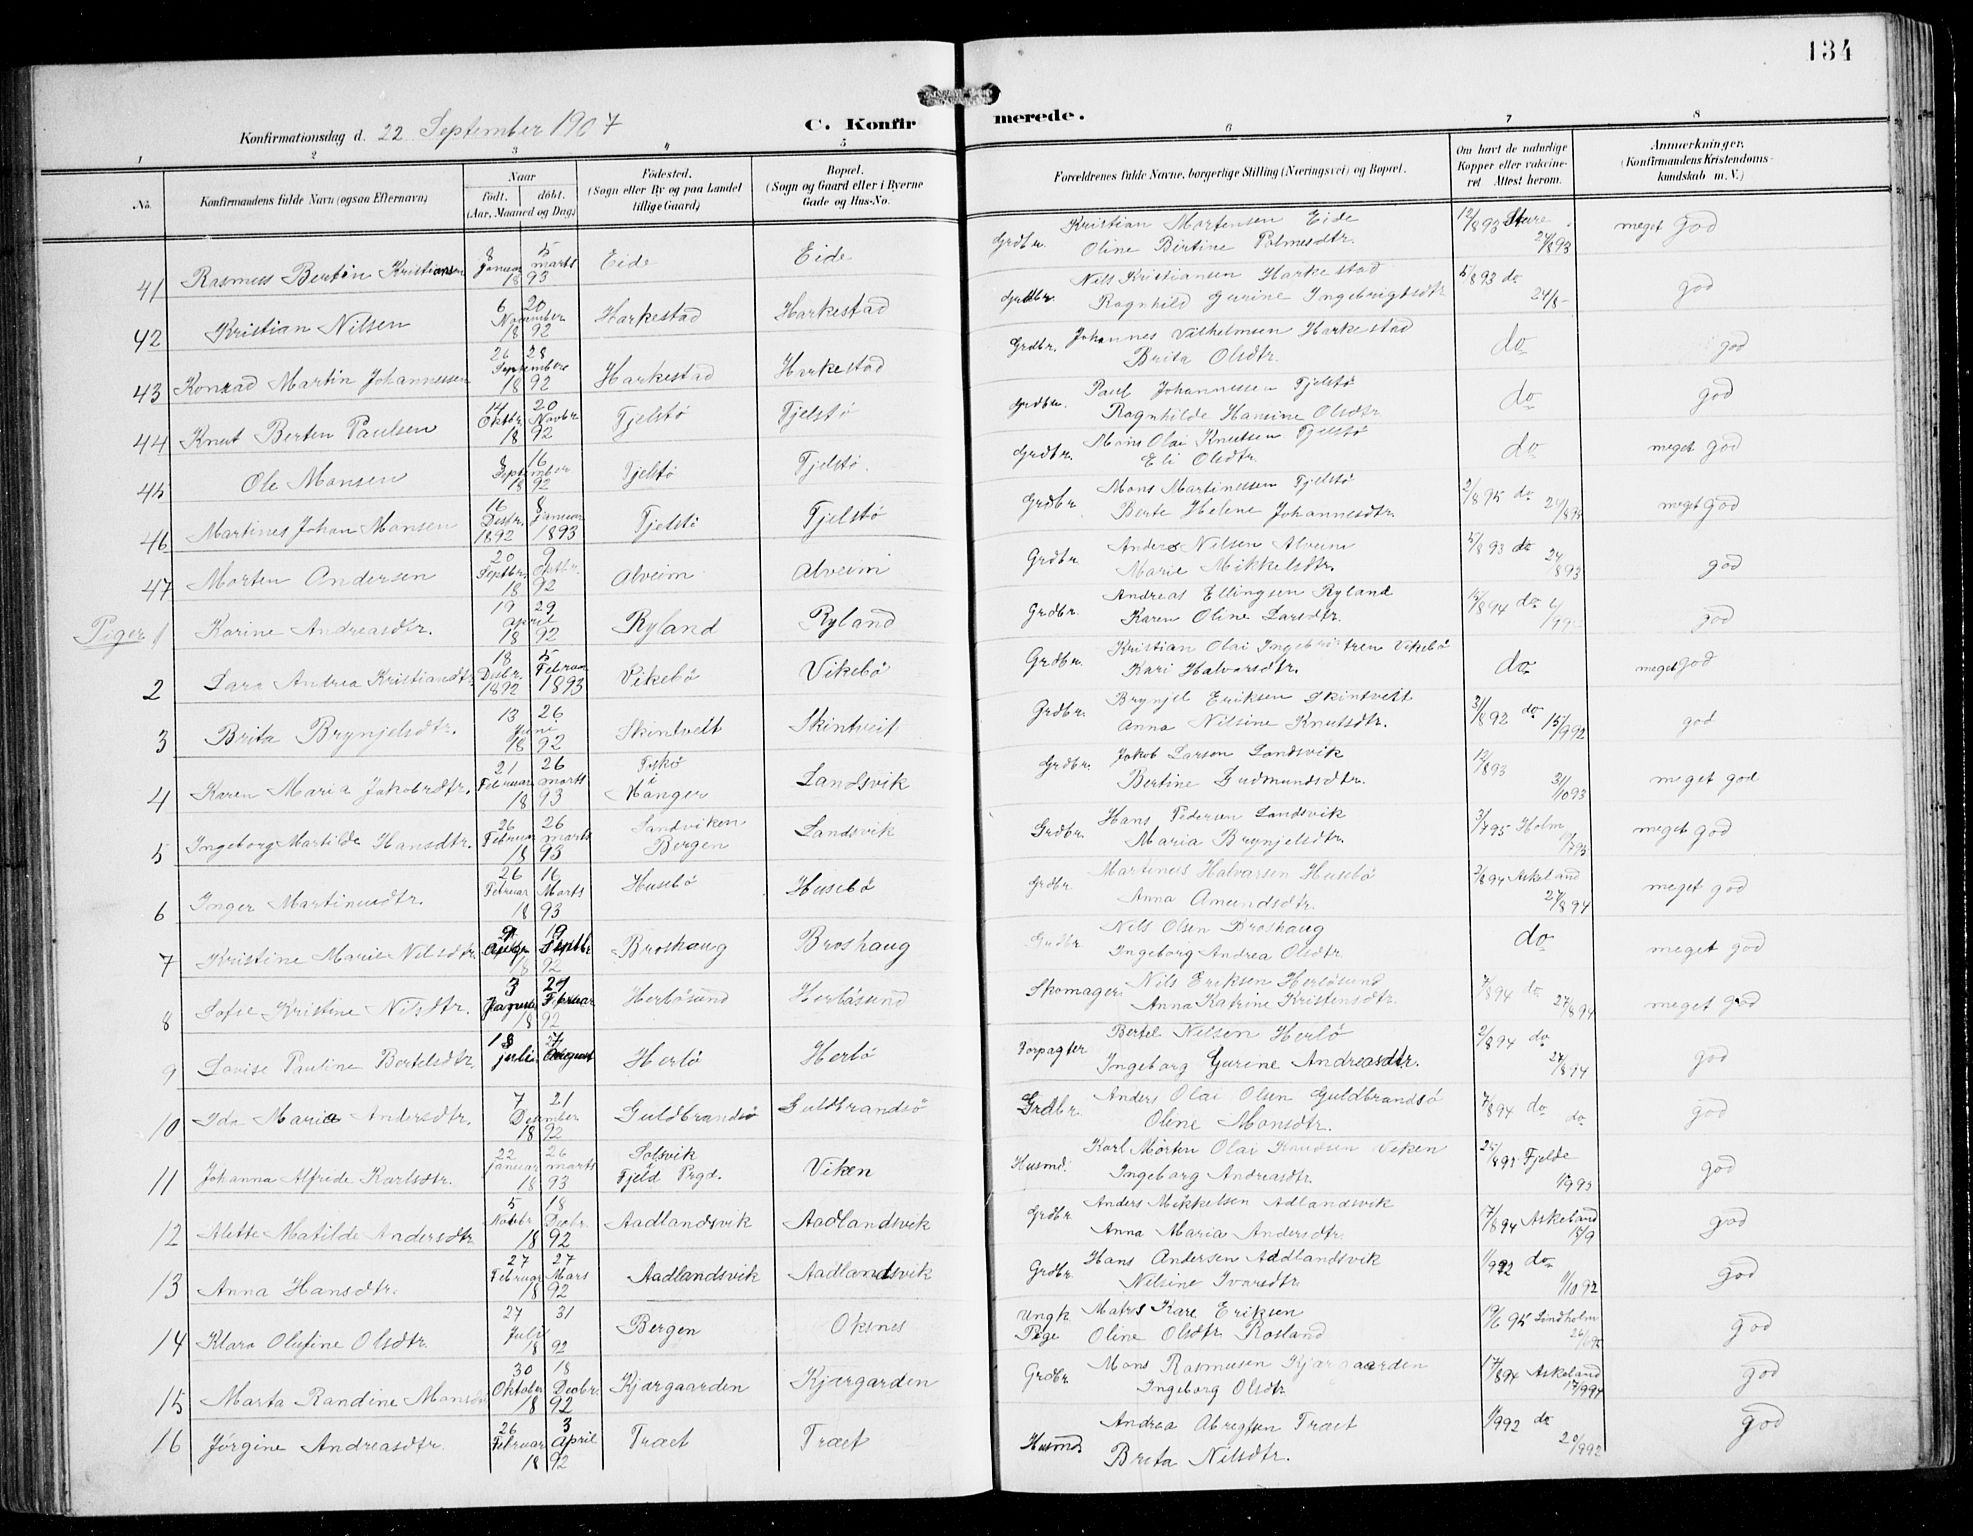 134
Konfirmationsdag d. 22 September 1907
C. Konfirmerede.
1 2 3 4 5 6 7 8
No. Konfirmandens fulde Navn (ogsaa Efternavn) Naar født. døbt. (Aar, Maaned og Dag) Fødested. (Sogn eller By og paa Landet tillige Gaard) Bopæl. (Sogn og Gaard eller i Byerne Gade og Hus-No. Forældrenes fulde Navne, borgerlige Stilling (Næringsvei) og Bopæl. Om havt de naturlige Kopper eller vakcineret Attest herom. Anmærkninger. (Konfirmandens Kristendomskundskab m. V.)
41 Rasmus Bertin Kristiansen 8 Januar 5 marts 1893 Eide Eide Grdbr. Kristian Mortensen Eide
Oline Bertine Palmesdtr. 12/893 24/893 meget god
42 Kristian Nilsen 6 20 November 1892 Harkestad Harkestad Grdbr. Nils Kristiansen Harkestad
Ragnhild Gurine Ingebrigtsdtr 5/893 do 24/8 god
43 Konrad Martin Johannessen 26 28 September 1892 Harkestad Harkestad Grdbr. Johannes Vilhelmsen Harkestad
Brita Olsdtr. do god
44 Knut Berten Paulsen 14 Oktbr. 20 Novbr 1892 Tjelstø Tjelstø Grdbr. Paul Johannessen Tjelstø
Ragnhilde Hansine Olsdtr do god
45 Ole Monsen 8 16 September 1892 Tjelstø Tjelstø. Grdbr. Mons Olai Knutsen Tjelstø
Eli Olsdtr. do meget god
46 Martines Johan Monsen 16 Desbr. 1892 8 Januar 1893 Tjelstø Tjelstø Grdbr. Mons Martinessen Tjelstø
Berte Helene Johannesdtr. 2/895 do 24/895 meget god
47 Morten Andersen 20 Septbr. 9 1892 Alveim Alveim Grdbr. Anders Nilsen Alveim
Marie Mikkelsdtr. 5/893 do 24/893 god
Piger 1 Karine Andreasdtr. 19 29 April 1892 Ryland Ryland Grdbr. Andreas Ellingsen Ryland
Karen Oline Larsdtr. 12/894 do god
2 Lara Andrea Kristiansdtr. 18 Desbr. 1892 5 Februar 1893 Vikebø Vikebø Grdbr. Kristian Olai Vikebø
Kari Halvorsdtr. do meget god
3 Brita Brynjelsdtr. 13 26 Juni 1892 Skintveit Skintveit Grdbr. Brynjel Eriksen Skintveit
Anna Nilsine Knutsdtr. 31/892 do 15/992 god
4 Karen Maria Jakobsdtr. 21 Februar 26 marts 1893 i Manger Landsvik Grdbr. Jakob Larsen Landsvik
Bertine Gudmundsdtr. 12/893 31/1093 meget god
5 Ingeborg Martilde Hansdtr. 26 Februar 26 marts 1893 Sandviken Bergen Landsvik Grdbr. Hans Pedersen Landsvik
Maria Brynjelsdtr. 3/795 Holm meget god
6 Inger Martinusdtr. 26 Februar 16 Marts 1893 Husebø Husebø Grdbr. Martinus Halvorsen Husebø
Anna Amundsdtr. 2/894 Askeland 27/894 meget god
7 Kristine Marie Nilsdtr. 19 Septbr 1892 Broshaug Broshaug Grdbr. Nils Olsen Broshaug
Ingeborg Andrea Olsdtr do meget god
8 Sofie Kristine Nilsdtr. 3 Januar 27 Februar 1892 Herløsund Herløsund Skomager Nils Eriksen Herløsund
Anna Katrine Kristensdtr. 7/894 do 27/894 meget god
9 Lovise Pauline Bertelsdtr. 18 juli 27 August Herlø Herlø Forpagter Bertel Nilsen Herlø
Ingeborg Gurine Andreasdtr. 2/894 do 27/894 god
10 Ida Maria Andersdtr. 7 21 Desember 1892 Guldbrandsø Guldbrandsø Grdbr. Anders Olai Olsen Guldbrandsø
Oline Monsdtr. 7/894 do do god
11 Johanna Alfride Karlsdtr. 22 januar 26 marts 1893 Solsvik Fjeld Prgd. Viken Husmd. Karl Morten Olai Knudsen Viken
Ingeborg Andreasdtr. Fjelde god
12 Alette Matilde Andersdtr 5 Novbr. 18 Decbr. 1892 Aadlandsvik Aadlandsvik Grdbr. Anders Mikkelsen Adlandsvik
Anna Maria Andersdtr. 7/894 Askeland 17/9 god
13 Anna Hansdtr. 27 Februar 27 Mars 1892 Aadlandsvik Aadlandsvik Grdbr. Hans Andersen Aadlandsvik
Nilsine Ivarsdtr. 1/992 do 1/1092 god
14 Klara Olufine Olsdtr. 27 31 Juli 1892 Bergen Oksnes Ungk. Matros Kare Eriksen
Pige Oline Olsdtr. Rosland 19/6 95 Lindholm god
15 Marta Randine Monsdtr 30 Oktober 18 Decbr. 1892 Kjærgaarden Kjærgarden Grdbr. Mons Rasmusen Kjærgaarden
Ingeborg Olsdtr. 17/894 Askeland 17/994 god
16 Jørgine Andreasdtr. 26 Februar 3 April 1892 Træet Træet Husmd. Andrea Træet
Brita Nilsdtr. 1/992 do 20/992 god